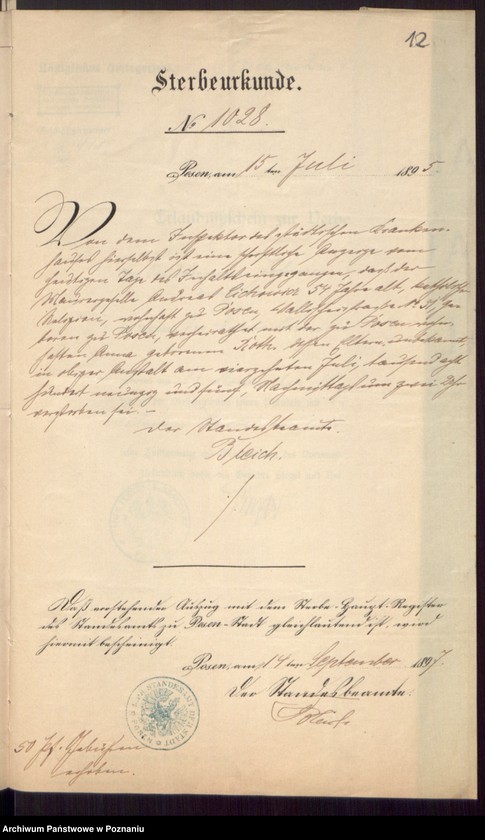 12
Sterbeurkunde.
№ 1028.
Posen, am 15 ten Juli 1895.
Von dem Inspektor des städtischen Kranken-
hauses hierselbst ist eine schriftliche Anzeige vom
heutigen Tage des Inhalts eingegangen, daß der
Maurergeselle Andreas Cichowicz 54 Jahre alt, katholischer
Religion, wohnhaft zu Posen, Wallischei № 37, ge-
boren zu verheirathet mit der zu Posen wohn-
haften Anna geborenen Roth, dessen Eltern unbekannt,
in obiger Anstalt am vierzehnten Juli, tausend acht
hundert neunzig und fünf, Nachmittags um zwei Uhr
verstorben sei. —
Der Standesbeamte.
Bleich.
Daß vorstehender Auszug mit dem Sterbe-Haupt-Register
des Standesamts zu Posen-Stadt gleichlautend ist, wird
hiermit bescheinigt.
Posen, am 14 ten September 1897.
Der Standesbeamte.
50 Pf. Gebühren
erhoben.
Archiwum Państwowe w Poznaniu